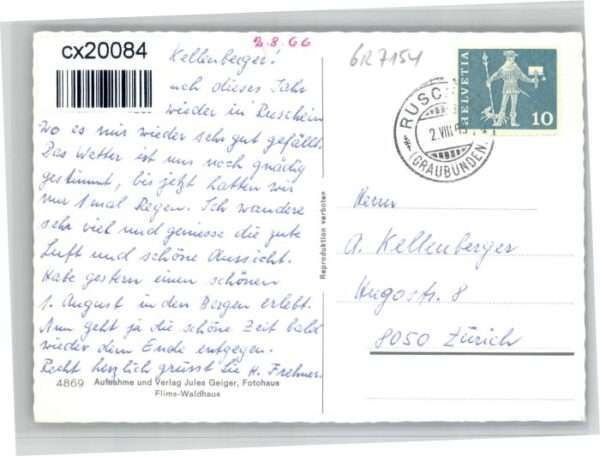 cx20084
2.8.66
GR7154
Kellenberger!
uch dieses Jahr
wieder in Ruschein
wo es mir wieder sehr gut gefällt.
Das Wetter ist uns noch gnädig
gestimmt, bis jetzt hatten wir
nur 1 mal Regen. Ich wandere
sehr viel und geniesse die gute
Luft und schöne Aussicht.
Habe gestern einen schönen
1. August in den Bergen erlebt.
Nun geht ja die schöne Zeit bald
wieder dem Ende entgegen.
Recht herzlich grüsst Sie H. Frehner.
4869 Aufnahme und Verlag Jules Geiger, Fotohaus
Flims-Waldhaus
Reproduktion verboten
HELVETIA
10
RUSC
2.VIII
(GRAUBÜNDEN)
Herrn
A. Kellenberger
Hugostr. 8
8050 Zürich